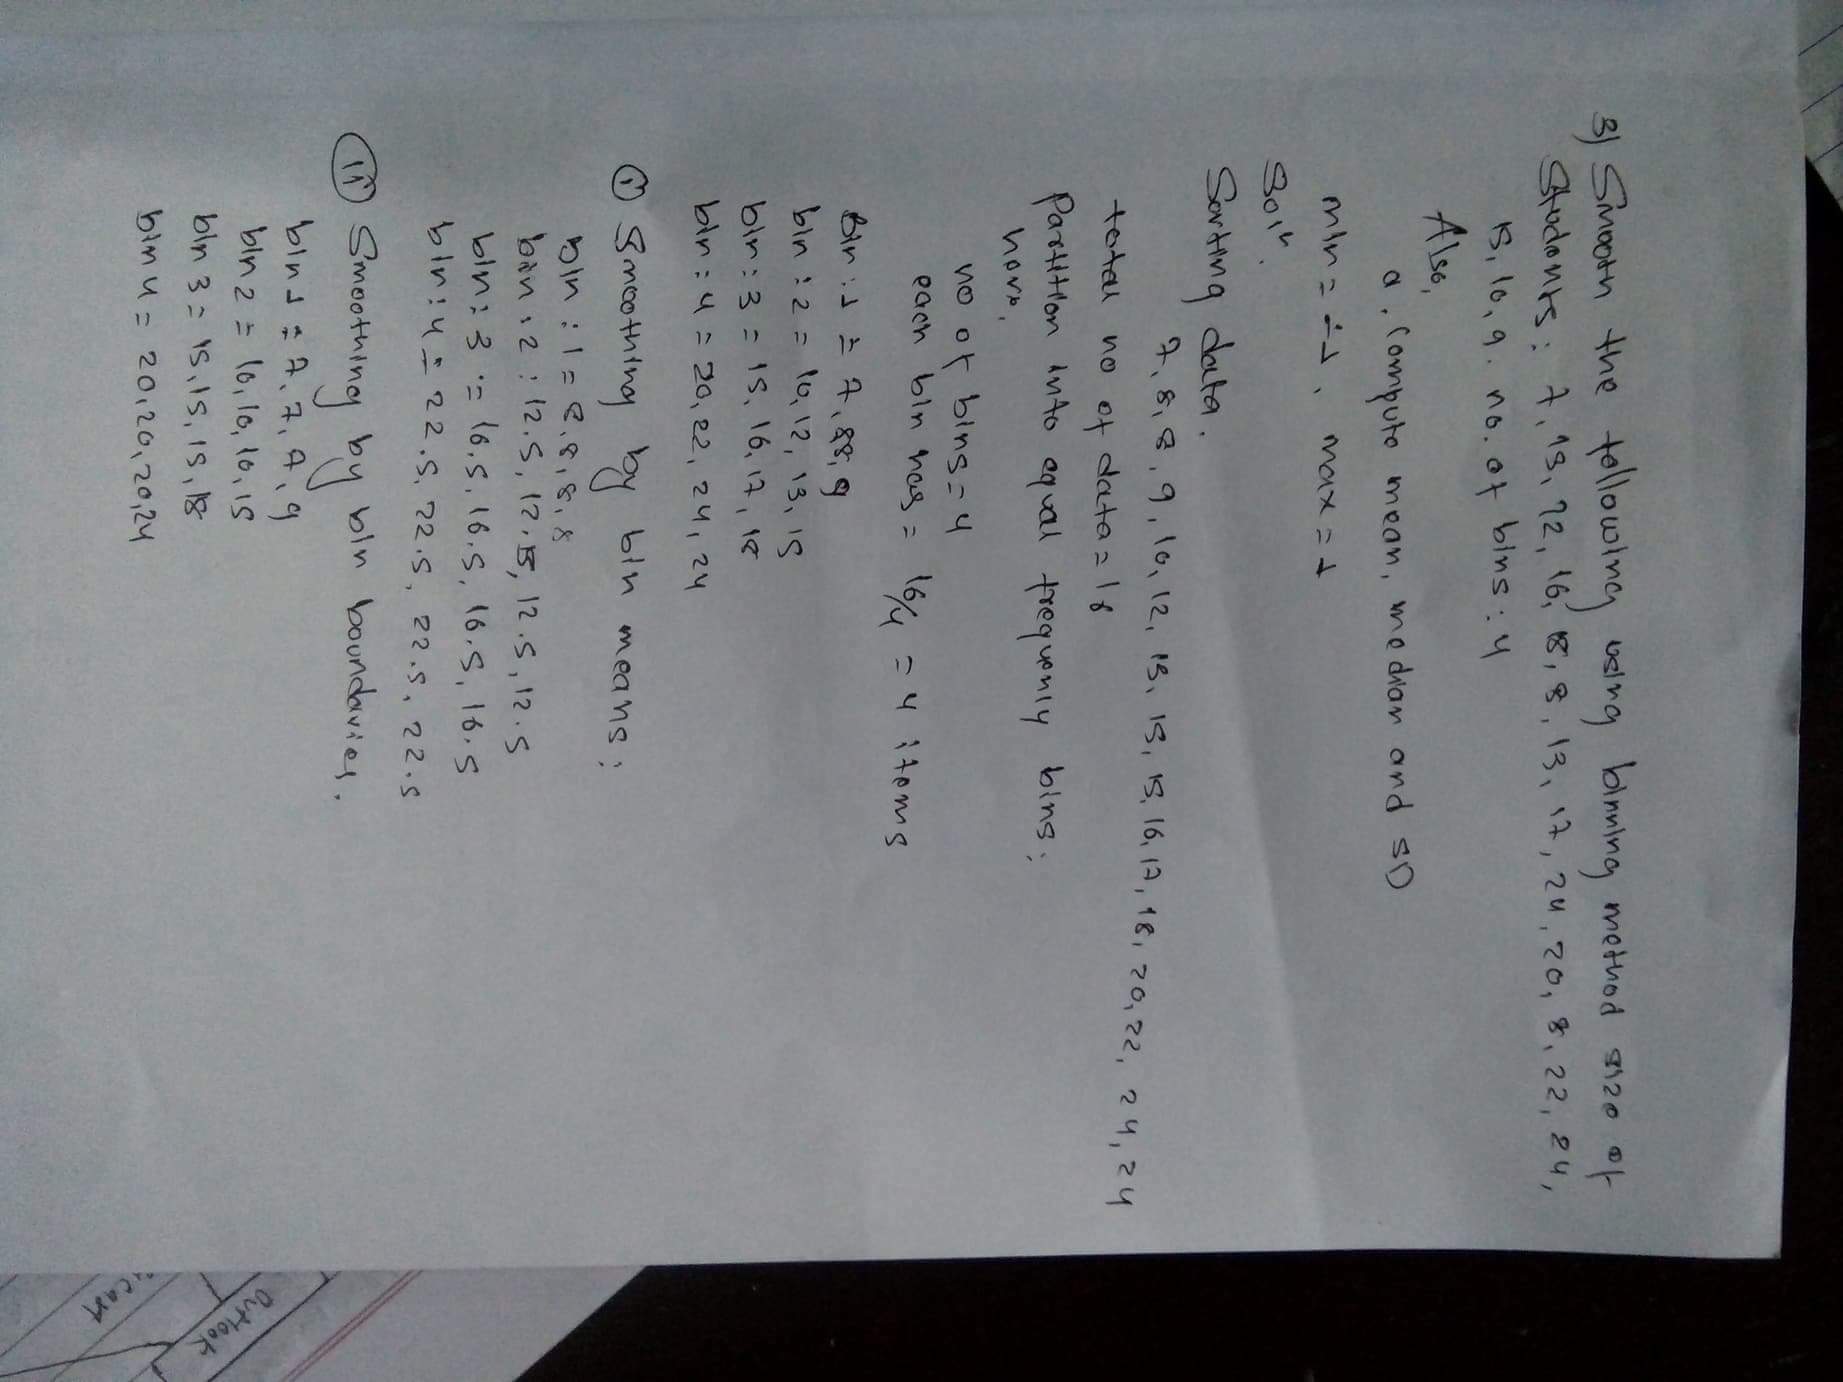 3) Smooth the following using binning method size of
Students: 7, 13, 22, 16, 18, 8, 13, 17, 24, 20, 8, 22, 24,
15, 10, 9. no. of bins: 4
Also,
a. Compute mean, median and SD
min = -1, max = 1
Soln.
Sorting data.
7, 8, 8, 9, 10, 12, 13, 15, 15, 16, 17, 18, 20, 22, 24, 24
total no of data = 16
Partition into equal frequenly bins:
here,
no of bins = 4
each bin has = 16/4 = 4 items
Bin: 1 = 7, 8 8, 9
bin: 2 = 10, 12, 13, 15
bin: 3 = 15, 16, 17, 18
bin: 4 = 20, 22, 24, 24
(i) Smoothing by bin means:
bin: 1 = 8, 8, 8, 8
bin: 2: 12.5, 12.5, 12.5, 12.5
bin: 3 = 16.5, 16.5, 16.5, 16.5
bin: 4 = 22.5, 22.5, 22.5, 22.5
(ii) Smoothing by bin boundaries.
bin 1 = 7, 7, 7, 9
bin 2 = 10, 10, 10, 15
bin 3 = 15, 15, 15, 18
bin 4 = 20, 20, 20, 24
Outlook